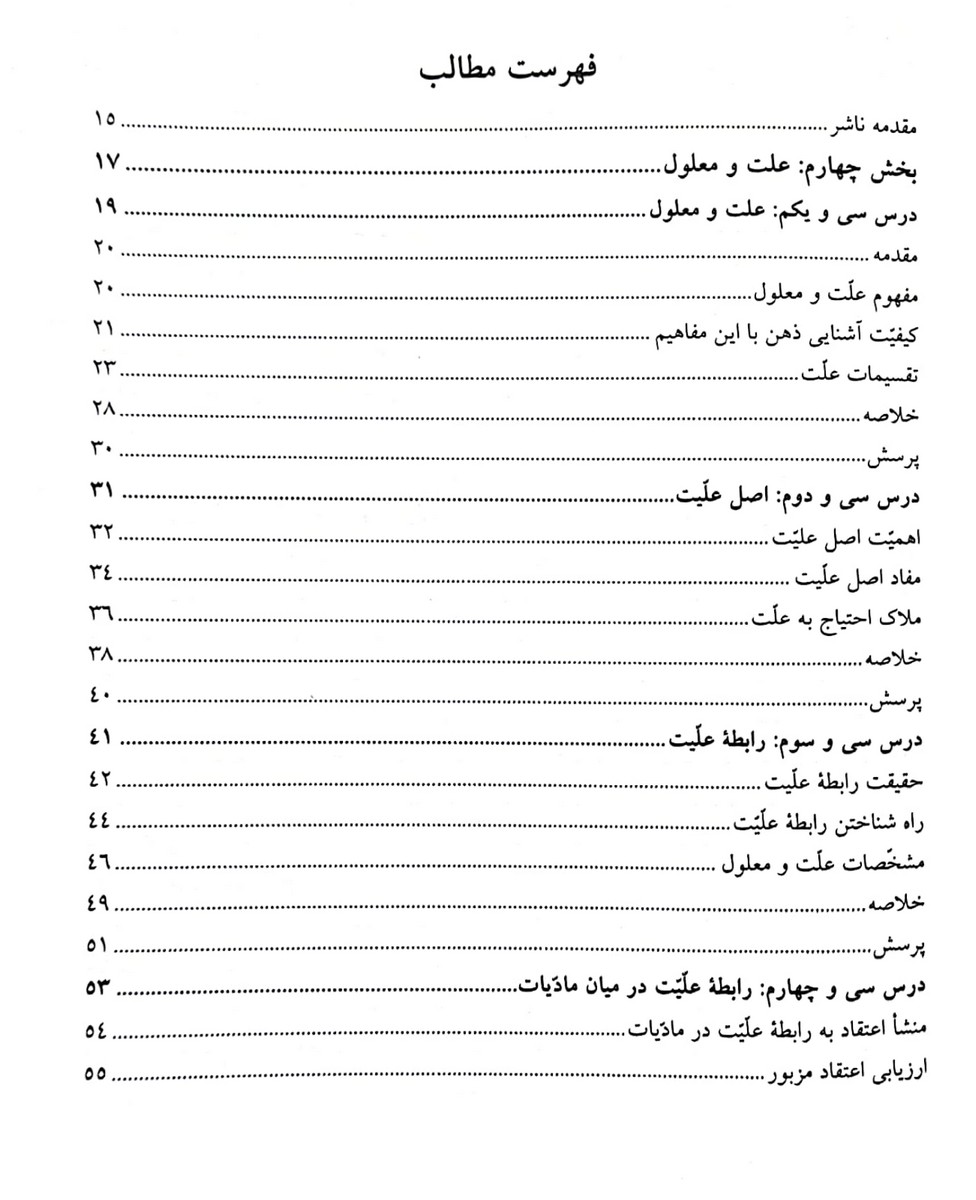 فهرست مطالب
مقدمه ناشر ............ ۱۵
بخش چهارم: علت و معلول ............ ۱۷
درس سی و یکم: علت و معلول ............ ۱۹
مقدمه ............ ۲۰
مفهوم علّت و معلول ............ ۲۰
کیفیّت آشنایی ذهن با این مفاهیم ............ ۲۱
تقسیمات علّت ............ ۲۳
خلاصه ............ ۲۸
پرسش ............ ۳۰
درس سی و دوم: اصل علّیت ............ ۳۱
اهمیّت اصل علیّت ............ ۳۲
مفاد اصل علّیت ............ ۳٤
ملاک احتیاج به علّت ............ ۳٦
خلاصه ............ ۳۸
پرسش ............ ٤۰
درس سی و سوم: رابطۀ علّیت ............ ٤۱
حقیقت رابطۀ علّیت ............ ٤۲
راه شناختن رابطۀ علّیّت ............ ٤٤
مشخّصات علّت و معلول ............ ٤٦
خلاصه ............ ٤۹
پرسش ............ ۵۱
درس سی و چهارم: رابطۀ علّیّت در میان مادّیات ............ ۵۳
منشأ اعتقاد به رابطۀ علّیّت در مادّیات ............ ۵٤
ارزیابی اعتقاد مزبور ............ ۵۵